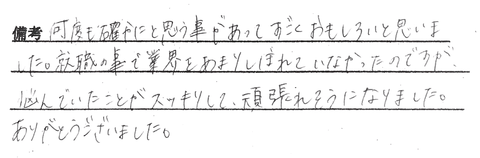 備考 何度も確かにと思う事があってすごくおもしろいと思いま
した。就職の事で業界をあまりしぼれていなかったのですが、
悩んでいたことがスッキリして、頑張れそうになりました。
ありがとうございました。